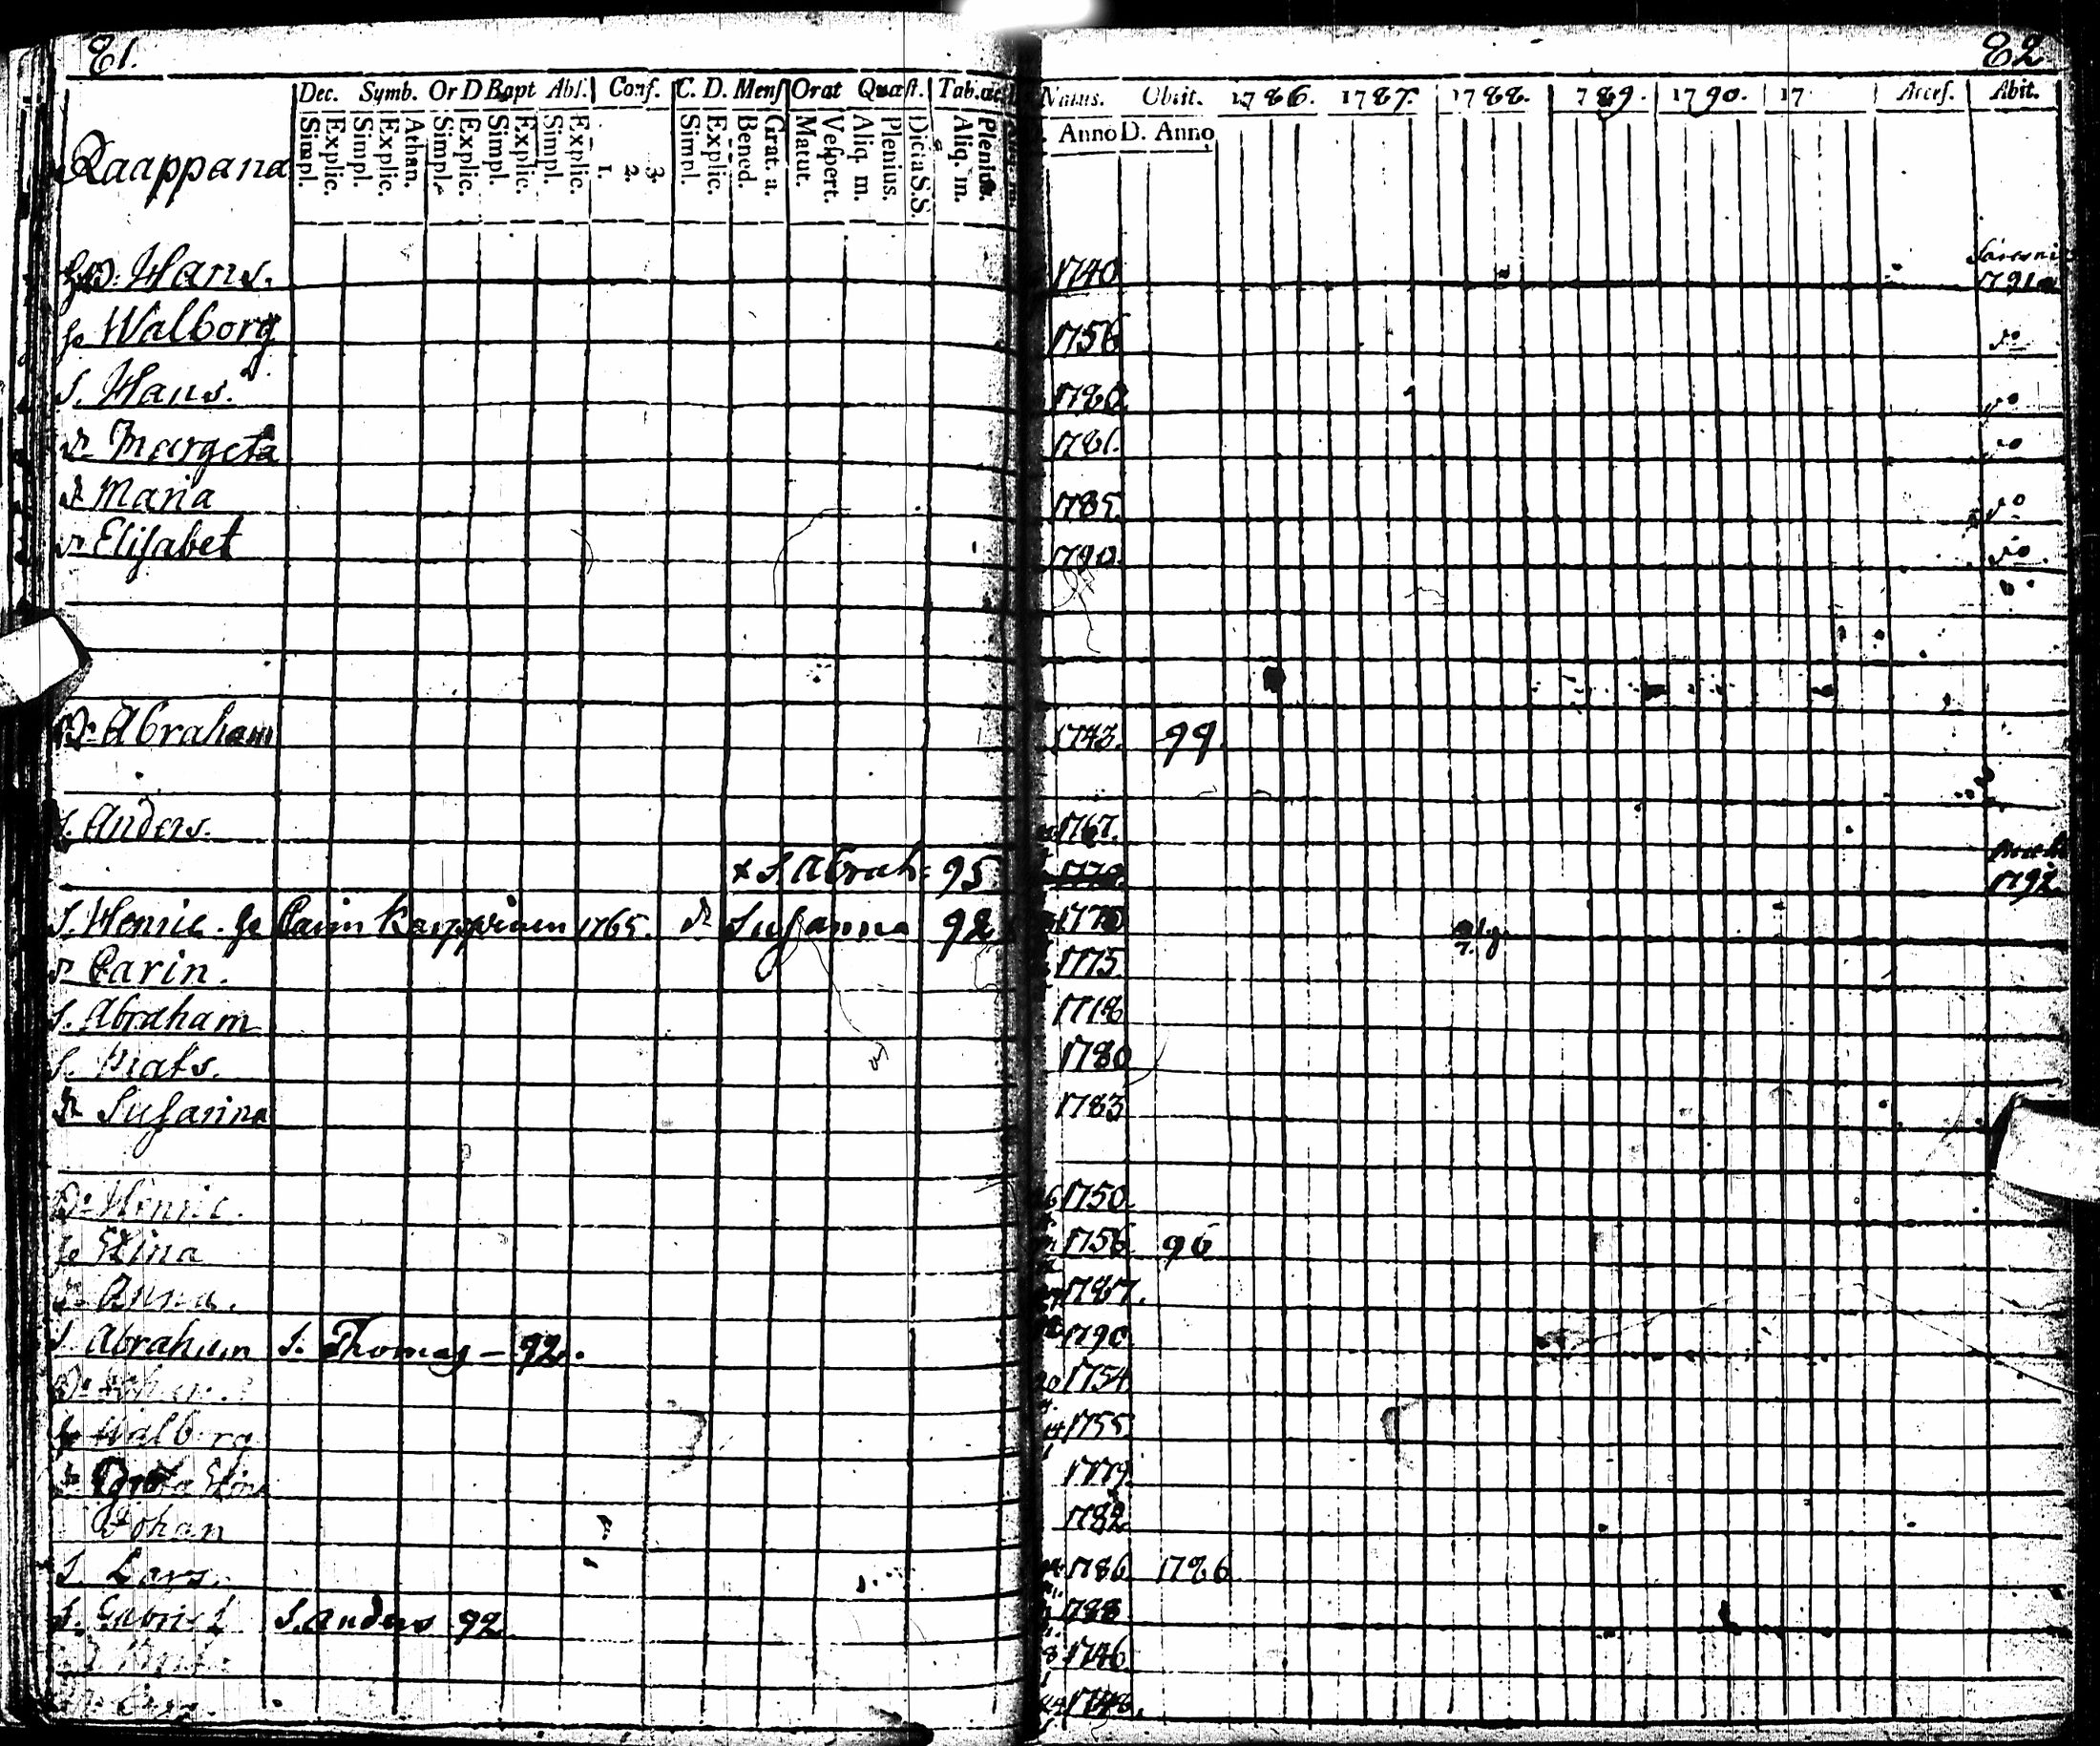 81. 82
Dec. Symb. Or D Bapt Abs. Conf. C. D. Mens Orat Quæst. Tab. œc Natus. Obiit. 1786. 1787. 1788. 1789. 1790. 17 Access. Abit.
Simpl. Explic. Simpl. Explic. Athan. Simpl. Explic. Simpl. Explic. Simpl. Explic. 1. 2. 3. Simpl. Explic. Bened. Grat. a. Matut. Vespert. Aliq. m. Plenius. Dicta S.S. Aliq. m. Plenius. Anno D. Anno
Raappana
Hans. 1740 1791
h. Walborg 1756 do
S. Hans. 1780 do
dr Margeta 1781. do
dr Maria 1785. do
dr Elisabet 1790. do
Dr Abraham 1743. 99.
S. Anders. 1767.
x S. Abrah: 95 1792
S. Henric. h Carin Kauppinen 1765. dr Susanna 92 1770
dr Carin. 1775
S. Abraham 1778
S. Mats. 1780
dr Susanna 1783
Dr Henric. 1750.
h Elina 1756 96
dr Anna. 1787.
S Abraham S. Thomas – 92. 1790
1754
h Walborg 1755
1779.
Johan 1782
S. Lars. 1786 1786
S. Gabriel S. Anders 92 1788
1746
1748.